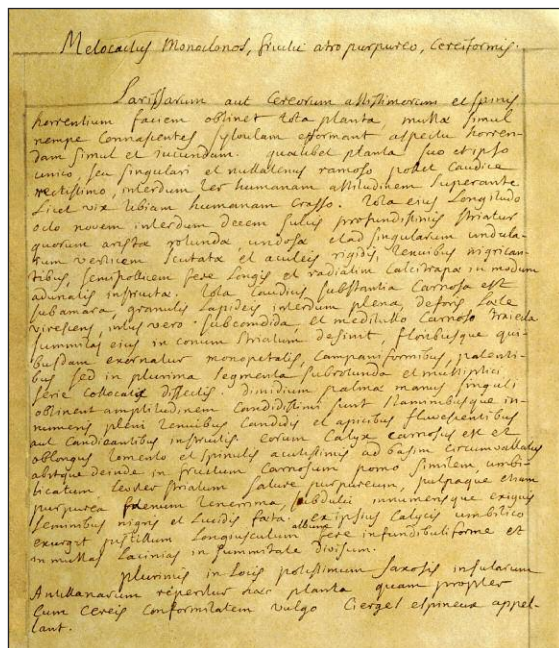 Melocactus Monoclonos, fructu atro purpureo, Cereiformis.
Sarissarum aut Cereorum altissimorum et spinis
horrentium faciem obtinet tota planta, multæ simul
nempe Connascentes sylvulam efformant aspectu horren-
dam simul et iucundam. quælibet planta suo et ipso
unico, seu singulari et nullatenus ramoso pollet Caudice
rectissimo, interdum ter humanam altitudinem superante
Licet vix tibiam humanam Crasso. Tota eius Longitudo
octo novem interdum decem sulcis profundissimis striatur
quorum aristæ rotundæ undosæ et ad singularum undula-
rum verticem scutatæ et aculeis rigidis, tenuibus nigrican-
tibus, semipollicem fere Longis et radiatim Calcitrapæ in modum
adunatis instructæ. Tota Caudicis substantia Carnosa est
subamara, granulis Lapideis interdum plena, deforis Læte
virescens, intus vero subcandida, et meditullio Carnoso traiecta
summitas eius in conum striatum desinit, floribusque qui-
busdam exornatur monopetalis, Campaniformibus, patenti-
bus sed in plurima segmenta subrotunda et multiplici
serie collocata dissectis. dimidium palmæ manus singuli
obtinent amplitudinem Candidissimi sunt staminibusque in-
numeris pleni tenuibus Candidis et apicibus flavescentibus
aut Candicantibus instructis eorum Calyx carnosus est et
oblongus tomento et spinulis acutissimis ad basim circumvallatus
abitque deinde in fructum Carnosum pomo similem umbi-
licatum leviter striatum sature purpureum, pulpaque etiam
purpurea tenerrima, subdulci innumerisque exiguis
seminibus nigris et Lucidis fœta. ex ipsius Calycis umbilico
exurgit pistillum Longiusculum album fere infundibuliforme et
in multas Lacinias in summitate divisum.
plurimis in Locis potissimum saxosis insularum
Antillanarum reperitur hæc planta quam propter
Cum Cereis Conformitatem vulgo Cierge espineux appel-
lant.